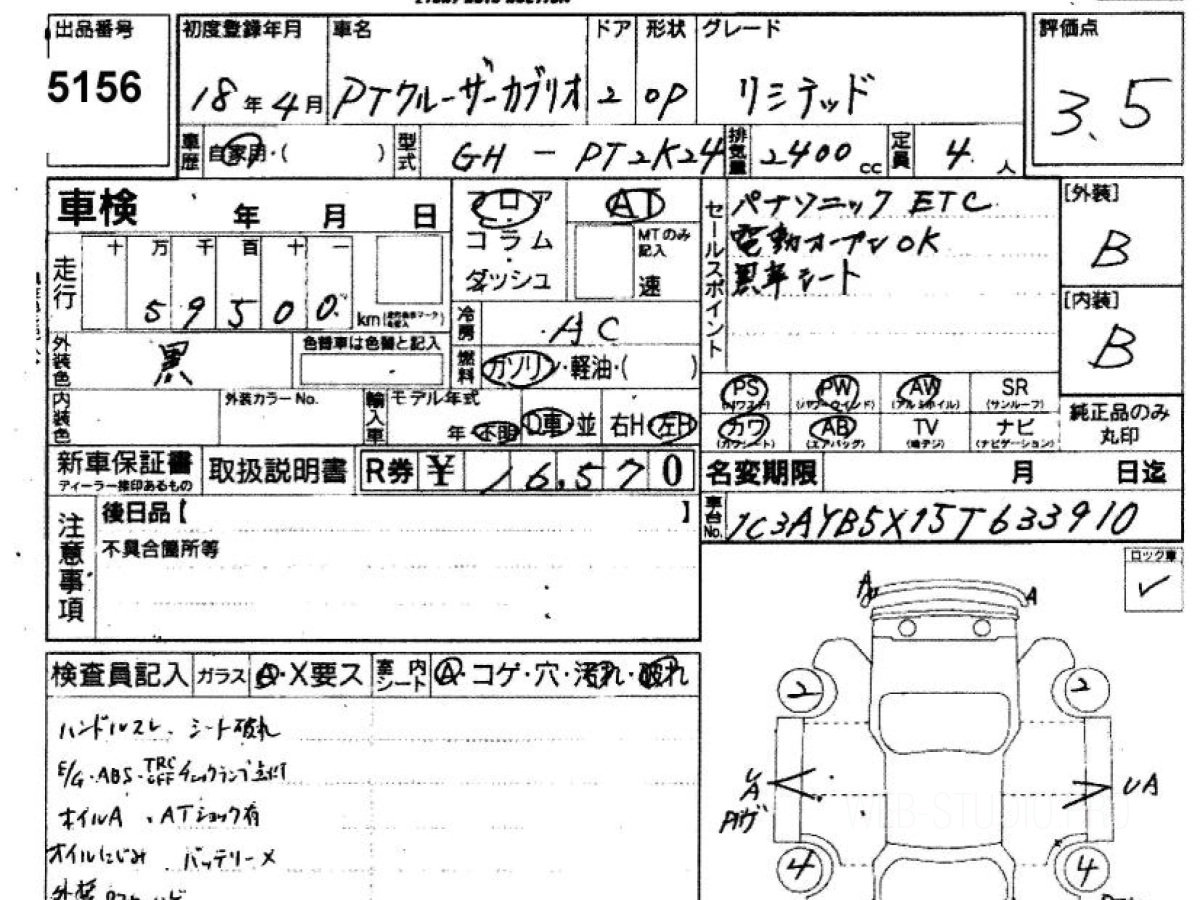 出品番号 初度登録年月 車名 ドア 形状 グレード 評価点
5156 18年4月 PTクルーザーカブリオ 2 OP リミテッド 3.5
車歴 自家用・( ) 型式 GH - PT2K24 排気量 2400cc 定員 4人
車検 年 月 日
フロア コラム ダッシュ
AT
MTのみ記入 速
セールスポイント
パナソニック ETC
電動オープンOK
黒革シート
[外装] B
[内装] B
走行 十 万 千 百 十 一
59500 km
冷房 AC
外装色 黒 色替車は色替と記入
燃料 ガソリン・軽油・( )
PS PW AW SR
(パワステ) (パワーウインド) (アルミホイル) (サンルーフ)
カワ AB TV ナビ
(カワシート) (エアバッグ) (地デジ) (ナビゲーション)
純正品のみ丸印
内装色 外装カラーNo. 輸入車 モデル年式 年・不明 D車・並 右H・左H
新車保証書 ディーラー捺印あるもの 取扱説明書 R券 ¥ 16,570
名変期限 月 日迄
車台No. 1C3AYB5X15T633910
注意事項
後日品【 】
不具合箇所等
ロック車
✓
A A
検査員記入 ガラス A・X要ス 室内シート A・コゲ・穴・汚れ・破れ
ハンドルスレ、シート破れ
2 2
E/G・ABS・TRC OFF チェックランプ点灯
オイルA、ATショック有
UA UA
オイルにじみ バッテリーX
4 4
外装
WEB-STUDIO.PRO